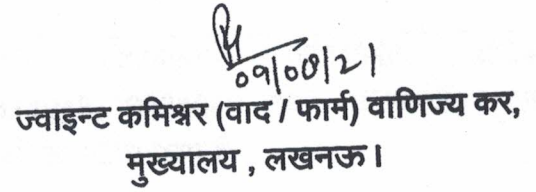 09/08/21
ज्वाइन्ट कमिश्नर (वाद / फार्म) वाणिज्य कर,
मुख्यालय , लखनऊ।